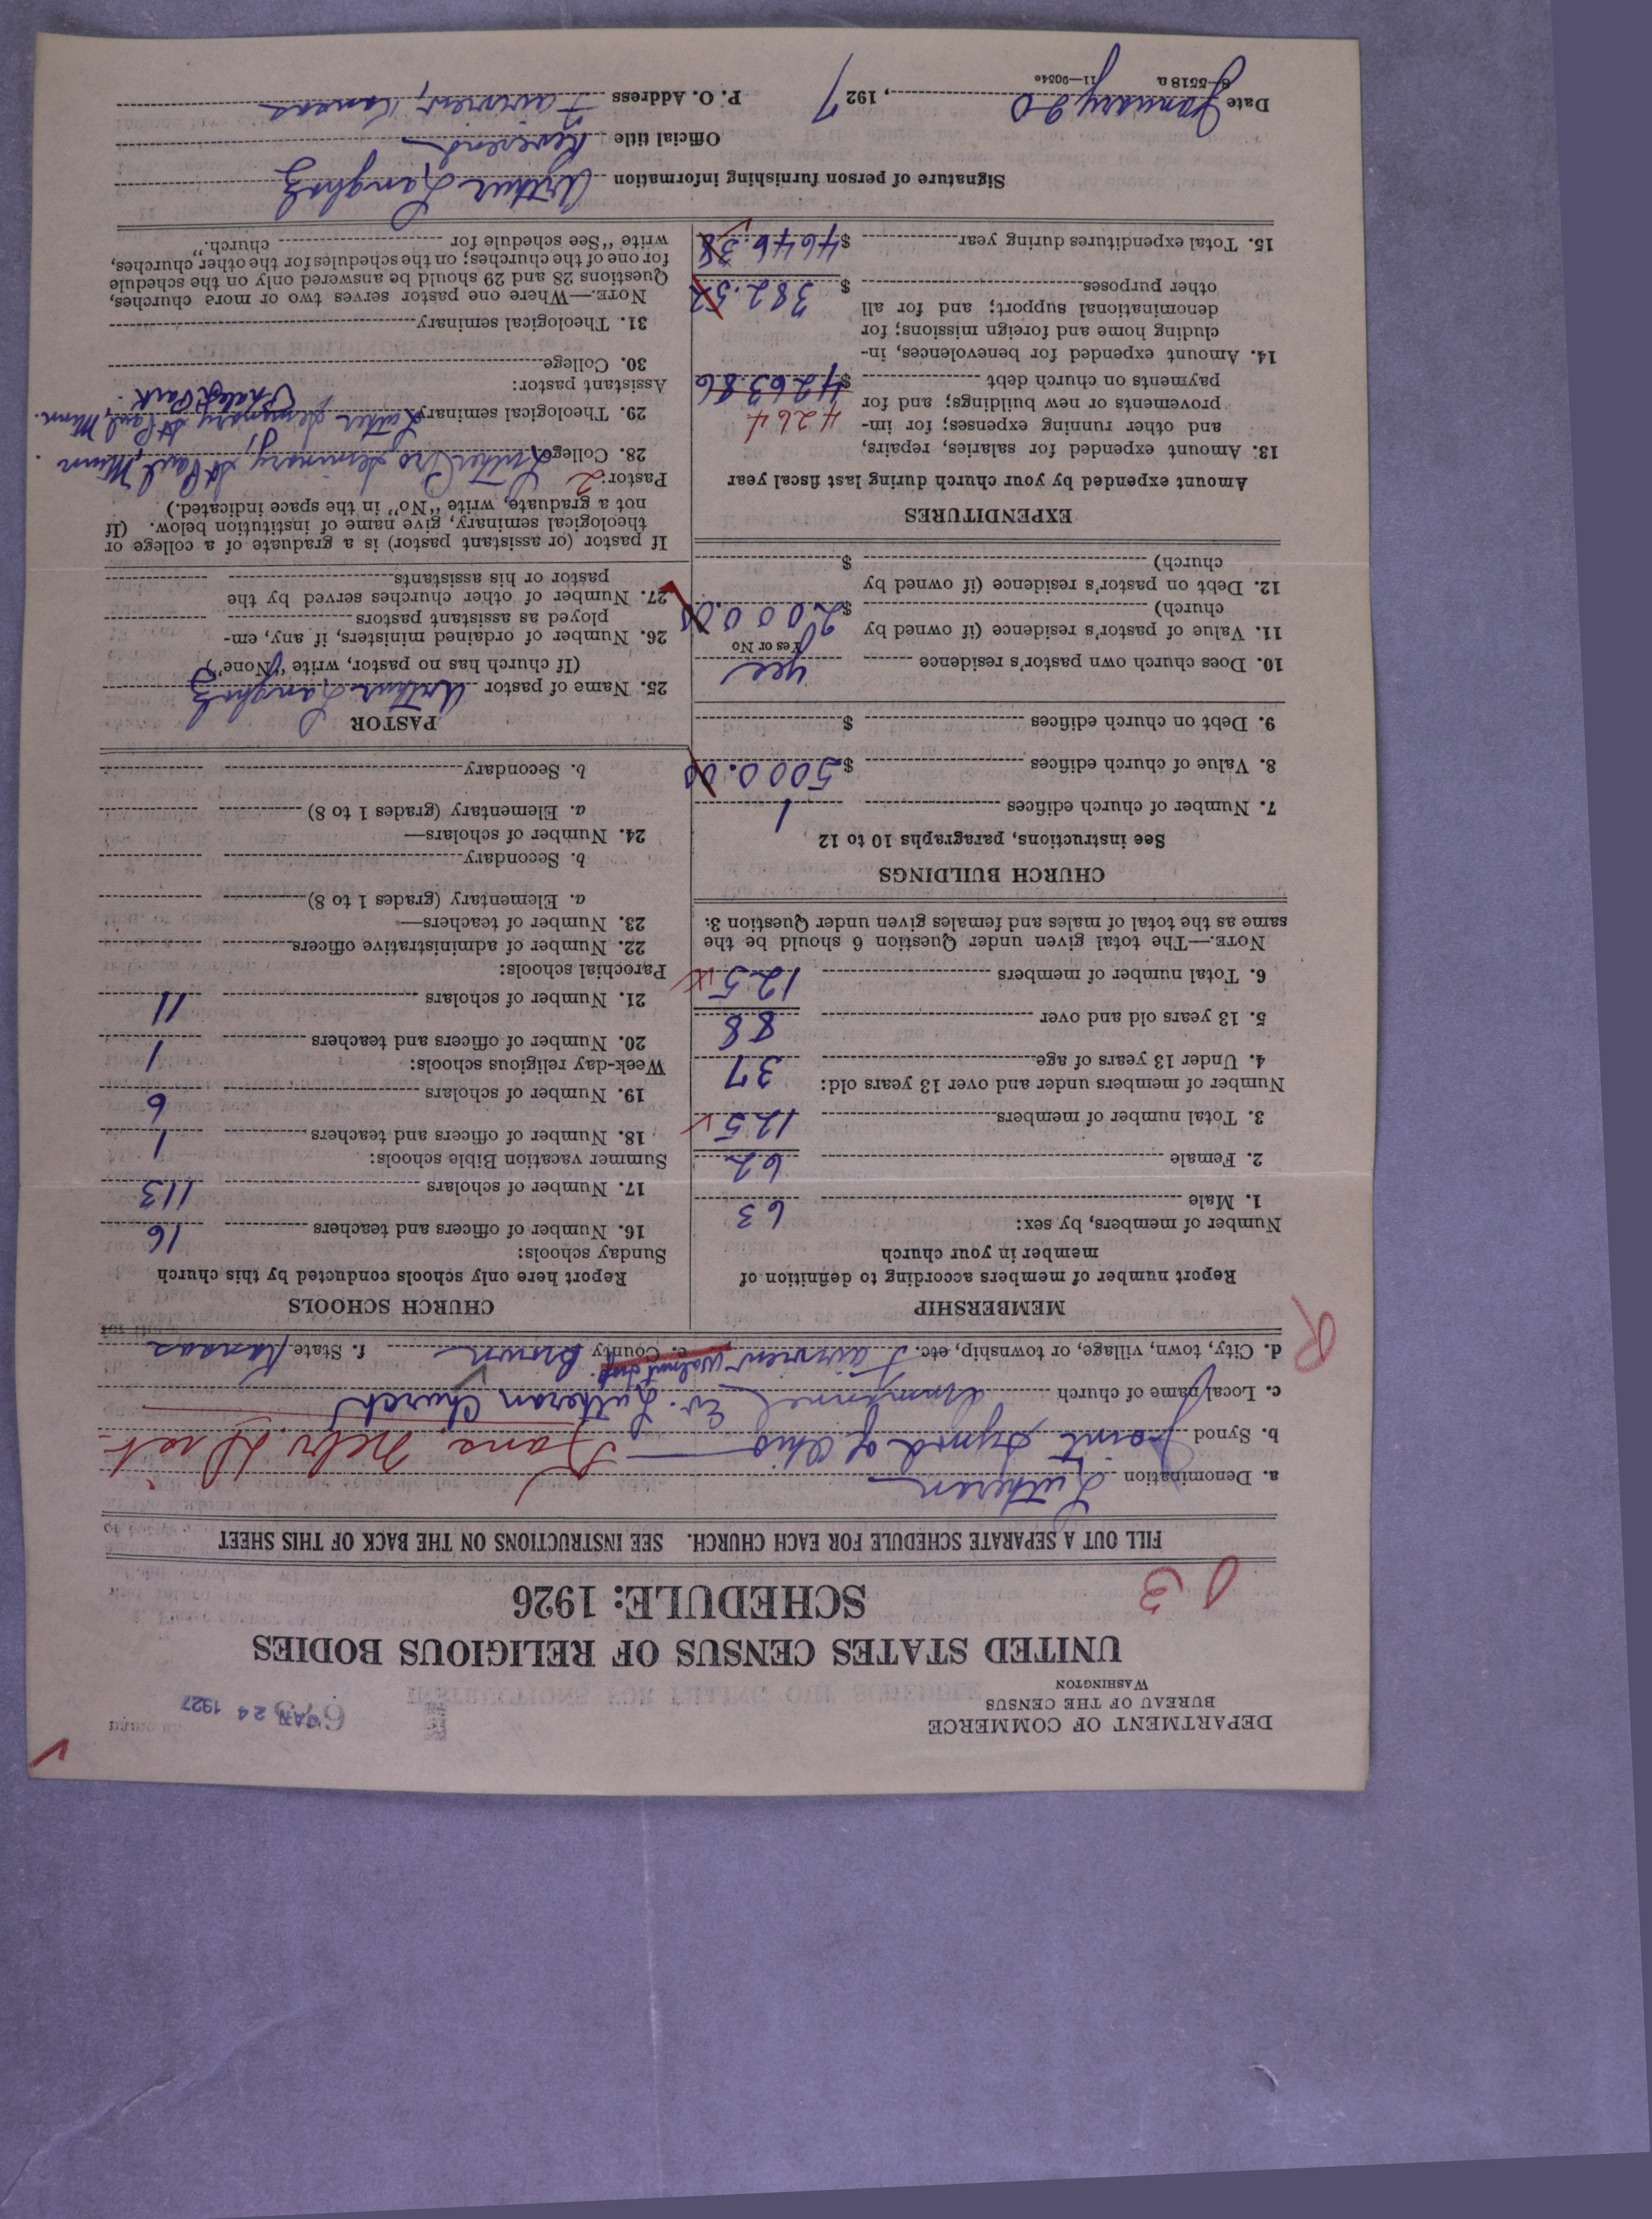 DEPARTMENT OF COMMERCE
BUREAU OF THE CENSUS
WASHINGTON
JAN 24 1927
UNITED STATES CENSUS OF RELIGIOUS BODIES
SCHEDULE: 1926
FILL OUT A SEPARATE SCHEDULE FOR EACH CHURCH. SEE INSTRUCTIONS ON THE BACK OF THIS SHEET
a. Denomination Lutheran
b. Synod Joint Synod of Ohio Kans. Nebr. Dist.
c. Local name of church Immanuel Ev. Lutheran Church
d. City, town, village, or township, etc. Fairview Walnut twp. e. County Brown f. State Kansas
R
MEMBERSHIP
Report number of members according to definition of
member in your church
Number of members, by sex:
1. Male 63
2. Female 62
3. Total number of members 125
Number of members under and over 13 years old:
4. Under 13 years of age 37
5. 13 years old and over 88
6. Total number of members 125
NOTE.—The total given under Question 6 should be the
same as the total of males and females given under Question 3.
CHURCH BUILDINGS
See instructions, paragraphs 10 to 12
7. Number of church edifices 1
8. Value of church edifices $5000.00
9. Debt on church edifices $
10. Does church own pastor's residence yes
Yes or No
11. Value of pastor's residence (if owned by
church) $2000.00
12. Debt on pastor's residence (if owned by
church) $
EXPENDITURES
Amount expended by your church during last fiscal year
13. Amount expended for salaries, repairs,
and other running expenses; for im-
provements or new buildings; and for
payments on church debt $4263.86
4264
14. Amount expended for benevolences, in-
cluding home and foreign missions; for
denominational support; and for all
other purposes $382.52
15. Total expenditures during year $4646.38
CHURCH SCHOOLS
Report here only schools conducted by this church
Sunday schools:
16. Number of officers and teachers 16
17. Number of scholars 113
Summer vacation Bible schools:
18. Number of officers and teachers 1
19. Number of scholars 6
Week-day religious schools:
20. Number of officers and teachers 1
21. Number of scholars 11
Parochial schools:
22. Number of administrative officers
23. Number of teachers—
a. Elementary (grades 1 to 8)
b. Secondary
24. Number of scholars—
a. Elementary (grades 1 to 8)
b. Secondary
PASTOR
25. Name of pastor Arthur Langholz
(If church has no pastor, write "None")
26. Number of ordained ministers, if any, em-
ployed as assistant pastors
27. Number of other churches served by the
pastor or his assistants
If pastor (or assistant pastor) is a graduate of a college or
theological seminary, give name of institution below. (If
not a graduate, write "No" in the space indicated.)
Pastor: 2
28. College Luther Pro Seminary, St Paul, Minn.
29. Theological seminary Luther Seminary St Paul, Minn.
Phalen Park.
Assistant pastor:
30. College
31. Theological seminary
NOTE.—Where one pastor serves two or more churches,
Questions 28 and 29 should be answered only on the schedule
for one of the churches; on the schedules for the other churches,
write "See schedule for church."
Signature of person furnishing information Arthur Langholz
Official title Reverend
Date January 20, 1927 P. O. Address Fairview, Kansas
8-5518 a 11—9054e